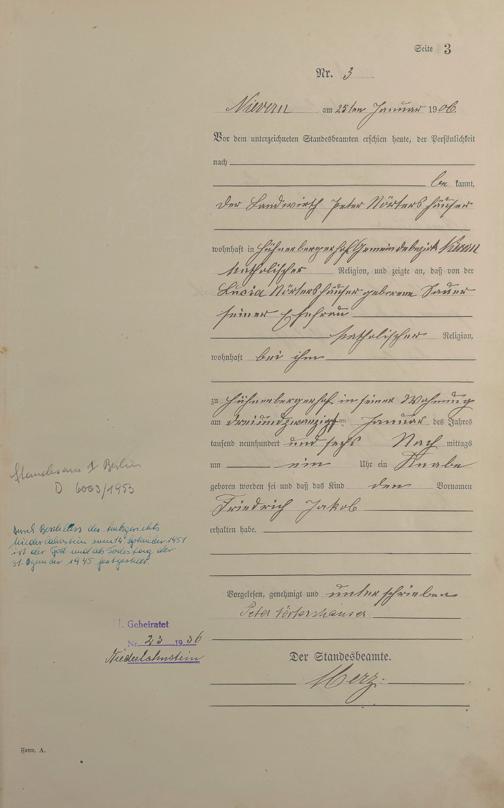 Seite 3
Nr. 3
Nievern am 25ten Januar 1906
Vor dem unterzeichneten Standesbeamten erschien heute, der Persönlichkeit
nach
be kannt,
der Landwirth Peter Nörtershäuser
wohnhaft in Hühnerbergerhof Gemeindebezirk Nievern
katholischer Religion, und zeigte an, daß von der
Lucia Nörtershäuser geborene Sauer
seiner Ehefrau
katholischer Religion,
wohnhaft bei ihm
zu Hühnerbergerhof in seiner Wohnung
am dreiundzwanzigsten Januar des Jahres
tausend neunhundert und sechs Nach mittags
um ein Uhr ein Knabe
geboren worden sei und daß das Kind den Vornamen
Friedrich Jakob
erhalten habe.
Standesamt I Berlin
D 6003/1953
Durch Beschluss des Amtsgerichts
Niederlahnstein vom 14. September 1951
ist der Tod und als Todestag der
31. Dezember 1945 festgestellt.
Vorgelesen, genehmigt und unterschrieben
Peter Nörtershäuser
1. Geheiratet
Nr. 23 1936
Niederlahnstein
Der Standesbeamte.
Merz.
Form. A.